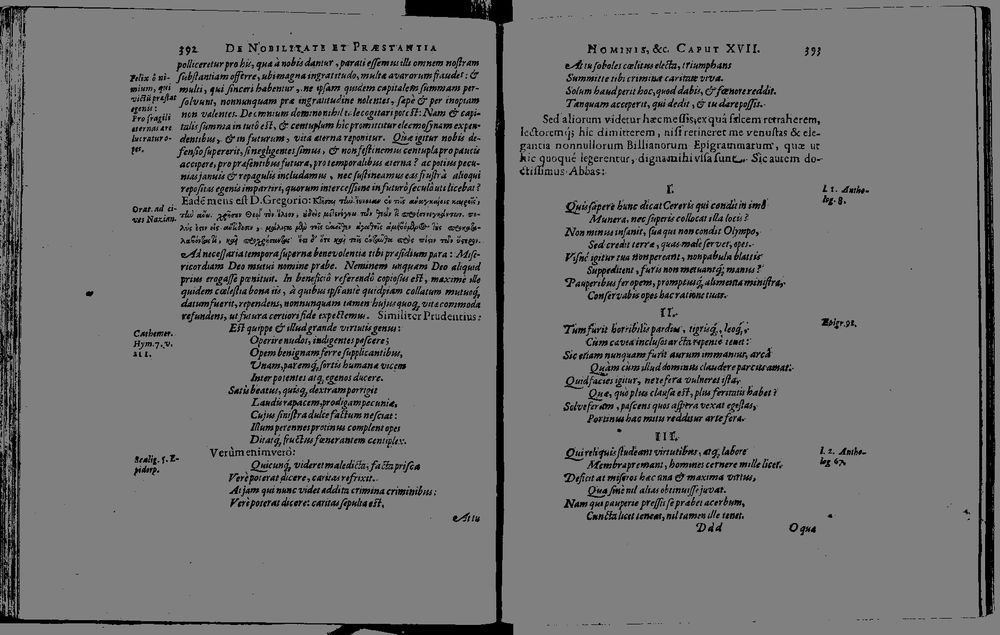 392 DE NOBILITATE ET PRÆSTANTIA
polliceretur pro his, quæ à nobis dantur, parati essemus illi omnem nostram
substantiam offerre, ubi magna ingratitudo, multæ avarorum fraudes: &
multi, qui sinceri habentur, ne ipsam quidem capitalem summam per-
solvunt, nonnunquam præ ingratitudine nolentes, sæpè & per inopiam
non valentes. De omnium domino nihil tale cogitari potest: Nam & capi-
talis summa in tuto est, & centuplum hîc promittitur eleemosynam expen-
dentibus, & in futurum, vita æterna reponitur. Quæ igitur nobis de-
fensio supererit, si negligentes simus, & non festinemus centupla pro paucis
accipere, pro præsentibus futura, pro temporalibus æterna? ac potius pecu-
nias januis & repagulis includamus, nec sustineamus eas frustrà alioqui
repositas egenis impartiri, quorum intercessione in futuro seculo uti licebat?
Felix ô ni-
mium, qui
victũ præstat
egenis:
Pro fragili
æternas are
lucratur o-
pes.
Eadẽ mens est D. Gregorio:
Orat. ad ci-
ves Nazian.
Ad necessaria tempora superna benevolentiæ tibi præsidium para: Mise-
ricordiam Deo mutui nomine præbe. Neminem unquam Deo aliquid
prius erogasse pœnituit. In beneficiô referendô copiosus est, maximè illo
quidem cælestia bona iis, à quibus ipse ante quidpiam collatum mutuoq́;
datum fuerit, rependens, nonnunquam tamen hujus quoq́; vitæ commoda
refundens, ut futura certiori fide expectemus. Similiter Prudentius:
Cathemer.
Hym. 7. v.
211.
Est quippe & illud grande virtutis genus:
Operire nudos, indigentes pescere;
Opem benignam ferre supplicantibus,
Unam, paremq́; sortis humanæ vicem
Inter potentes atq́; egenos ducere.
Satis beatus, quisq́; dextram porrigit
Laudis rapacem, prodigam pecuniæ,
Cujus sinistra dulce factum nesciat:
Illum perennes protinus complent opes
Ditatq́; fructus fœnerantem centuplex.
Verùm enimverò:
Scalig. 5. E-
pidorp.
Quicunq́; videret maledicta, facta prisca
Verè poterat dicere, caritas refrixit.
At jam qui nunc videt addita crimina criminibus:
Verè poterat dicere: caritas sepulta est.
At tu
NOMINIS, &c. CAPUT XVII. 393
At tu soboles cœlitus electa, triumphans
Summitte tibi crimina caritate viva.
Solum haud perit hoc, quod dabis, & fœnore reddit.
Tanquam acceperit, qui dedit, & tu dare possis.
Sed aliorum videtur hæc messis, ex quâ falcem retraherem,
lectoremq́; hîc dimitterem, nisi retineret me venustas & ele-
gantia nonnullorum Billianorum Epigrammatum, quæ ut
hîc quoque legerentur, digna mihi visa sunt. Sic autem do-
ctissimus Abbas:
I.
l. 1. Antho-
log. 8.
Quis sapere hunc dicat Cereris qui condit in imô
Munera, nec superis collocat illa locis?
Non minus insanit, sua qui non condit Olympo,
Sed credit terræ, quas male servet, opes.
Visne igitur tua non pereant, non pabula blattis
Suppeditent, furis non metuantq́; manus?
Pauperibus fer opem, promptusq́; alimenta ministra,
Conservabis opes hac ratione tuas.
II.
Epigr. 92.
Tum furit horribilis pardus, tigrisq́; leoq́;,
Cùm cavea inclusos arcta repente tenet:
Sic etiam nunquam furit aurum immanius, arcâ
Quàm cùm illud dominus claudere parcus amat.
Quid facies igitur, ne te fera vulneret ista,
Quæ, quo plus clausa est, plus feritatis habet?
Solve feram, pascens quos aspera vexat egestas,
Protinus hac mitis redditur arte fera.
III.
l. 2. Antho-
log. 67.
Qui reliquis studeant virtutibus, atq́; labore
Membra premant, homines cernere mille licet.
Deficit at miseros hæc una & maxima virtus,
Qua sine nil alias obtinuisse juvat.
Nam qui pauperie pressis se præbet acerbum,
Cuncta licet teneat, nil tamen ille tenet.
Ddd O quæ